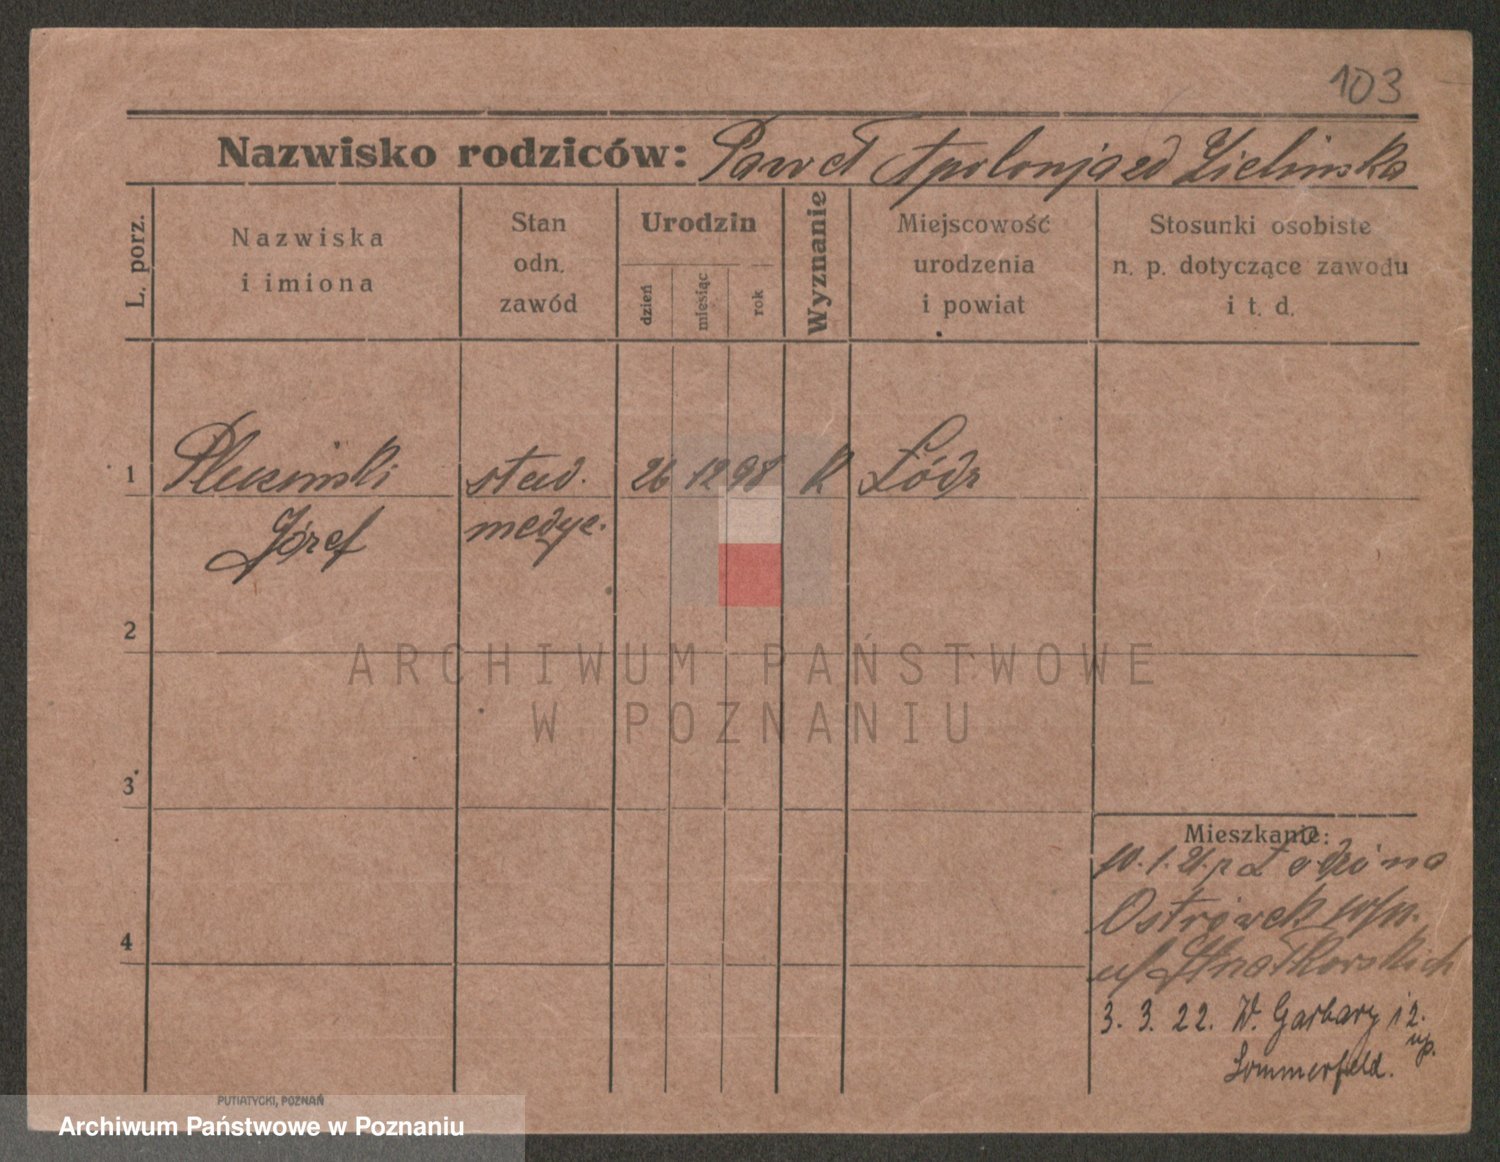 103
Nazwisko rodziców: Paweł Apolonja zd Zielinska
L. porz.
Nazwiska
i imiona
Stan
odn.
zawód
Urodzin
dzień
miesiąc
rok
Wyznanie
Miejscowość
urodzenia
i powiat
Stosunki osobiste
n. p. dotyczące zawodu
i t. d.
1 stud. 26 12 98 k Łódz
Józef medyc.
2
3
4
Mieszkanie:
10. 1. 21. z Łodzi na
Ostrówek
3. 3. 22. W. Garbary 12.
Sommerfeld.
PUTIATYCKI, POZNAŃ
ARCHIWUM PAŃSTWOWE
W POZNANIU
Archiwum Państwowe w Poznaniu